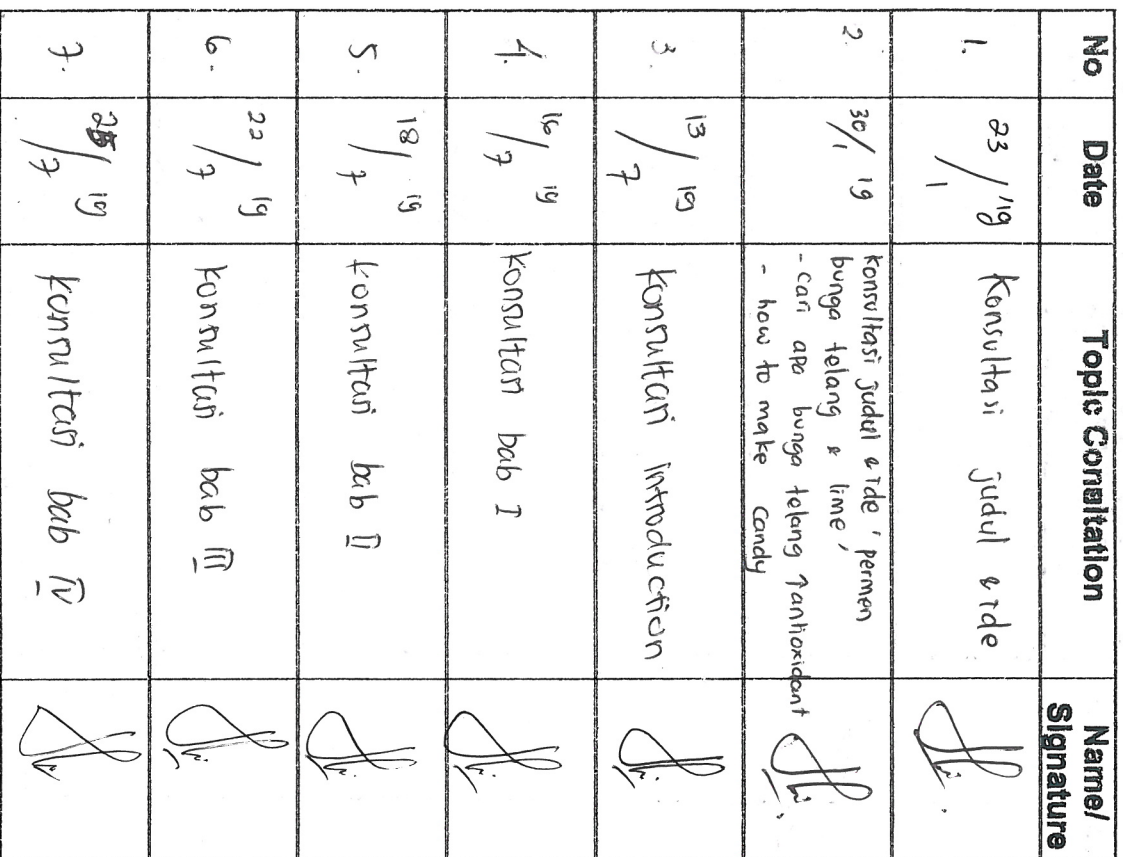 No Date Topic Consltation Name/
Signature
1. 23/1 '19 Konsultasi judul & ide
2. 30/1 19 Konsultasi judul & ide 'permen
bunga telang & lime'
- cari apa bunga telang ↑antioxidant
- how to make candy
3. 13/7 19 Konsultasi introduction
4. 16/7 19 Konsultasi bab I
5. 18/7 19 Konsultasi bab II
6. 22/7 19 Konsultasi bab III
7. 25/7 19 Konsultasi bab IV